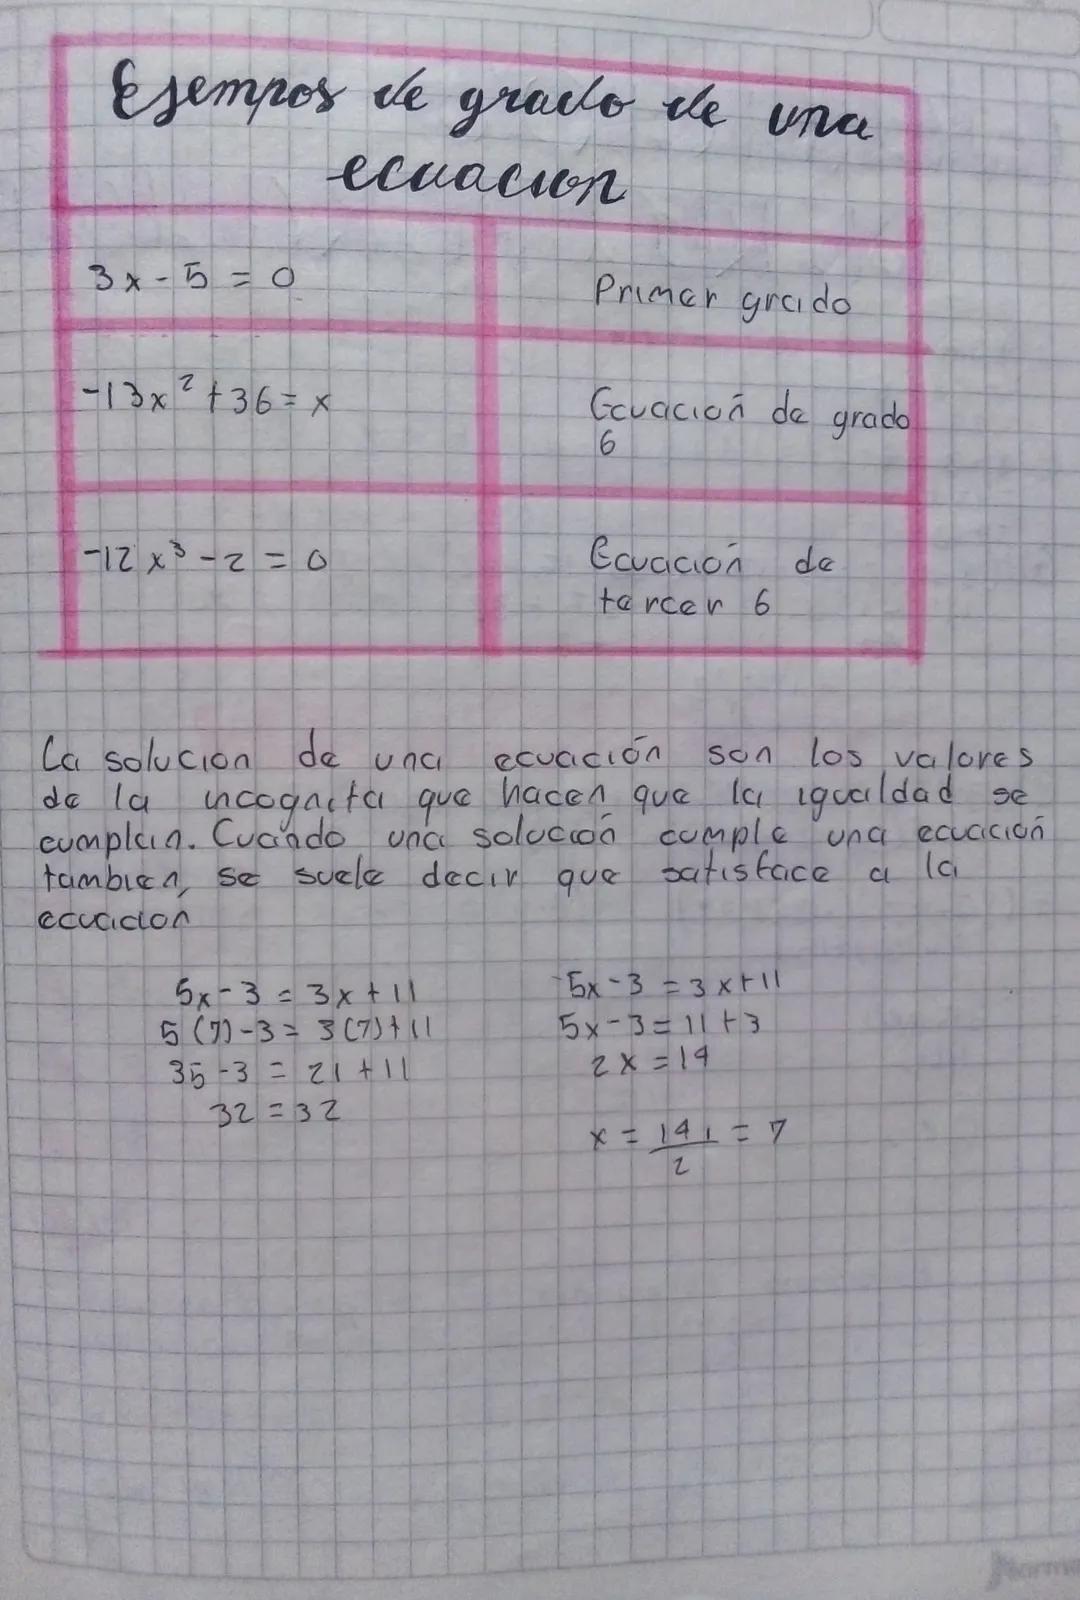 Ejempos de grado de una
ecuacion
3x - 5 = 0
Primer grado
-13x² + 36 = x
Ecuación de grado
6
-12x³ - 2 = 0
Ecuación de
tercer 6
La solucion de una ecuación son los valores
de la incognita que hacen que la igualdad se
cumplan. Cuando una solución cumple una ecuación
tambien, se suele decir que satisface a la
ecuacion
5x - 3 = 3x + 11
5 (7) - 3 = 3 (7) + 11
35 - 3 = 21 + 11
32 = 32
5x - 3 = 3x + 11
5x - 3 = 11 + 3
2x = 14
x = 14 = 7
2
Norma